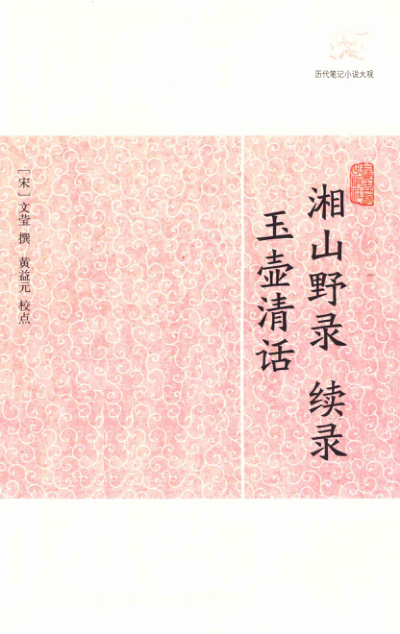 历代笔记小说大观
湘山野录 续录
玉壶清话
[宋]文莹 撰 黄益元 校点